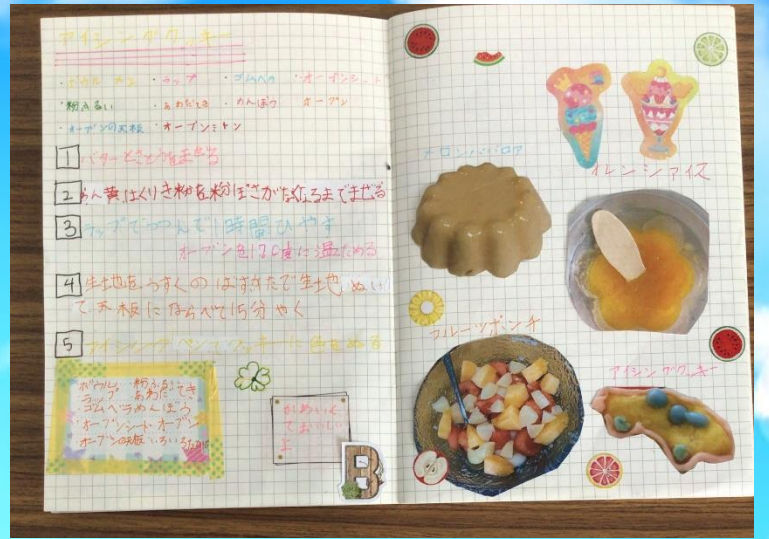 アイシングクッキー
・ボウル ・ラップ ・ゴムべら ・オーブンシート
・粉ふるい ・あわだてき ・めんぼう オーブン
・オーブンの天板 ・オーブンミトン
1 バターとさとうをまぜる
2 らん黄はくりき粉を粉ぽさがなくなるまでまぜる
3 ラップでつつんで1時間ひやす
オーブンを170度に温ためる
4 生地をうすくのばすかたで生地ぬい
て天板にならべて15分やく
5 アイシングペンでクッキーに色をぬる
ボウル 粉ふるい
ラップ あわだてき
ゴムベラめんぼう
オーブンシートオーブン
オーブンの天板
かわいく
ておいし
よ
B
メロンババロア
オレンジアイス
フルーツポンチ
アイシングクッキー